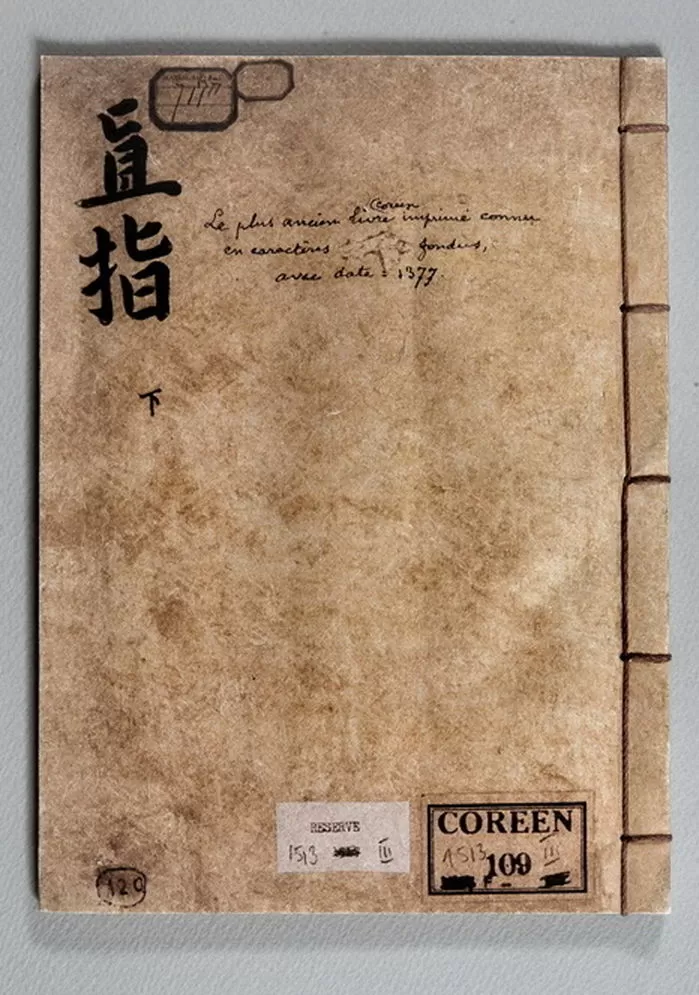 直指
下
Coréen
Le plus ancien livre imprimé connu
en caractères fondus,
avec date = 1377.
RESERVE
1513 III
COREEN
1513 III
109
120